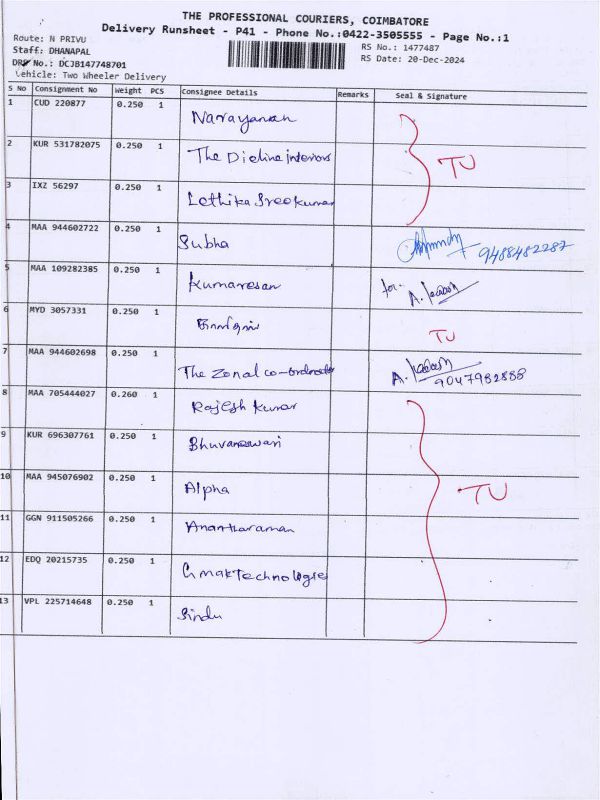 THE PROFESSIONAL COURIERS, COIMBATORE
Delivery Runsheet - P41 - Phone No.:0422-3505555 - Page No.:1
Route: N PRIVU
RS No.: 1477487
Staff: DHANAPAL
RS Date: 20-Dec-2024
DRS No.: DCJB147748701
Vehicle: Two Wheeler Delivery
S No Consignment No Weight PCS Consignee Details Remarks Seal & Signature
1 CUD 220877 0.250 1 Narayanan
2 KUR 531782075 0.250 1 The Dieline interiors TU
3 IXZ 56297 0.250 1 Lethika Sreekumar
4 MAA 944602722 0.250 1 Subha 9488482287
5 MAA 109282385 0.250 1 Kumaresan for
6 MYD 3057331 0.250 1 TU
7 MAA 944602698 0.250 1 The Zonal co-ordinator 9047982888
8 MAA 705444027 0.260 1 Rajesh Kumar
9 KUR 696307761 0.250 1 Bhuvaneswari
10 MAA 945076902 0.250 1 Alpha TU
11 GGN 911505266 0.250 1 Anantharaman
12 EDQ 20215735 0.250 1 Gmak Technologies
13 VPL 225714648 0.250 1 Sindu